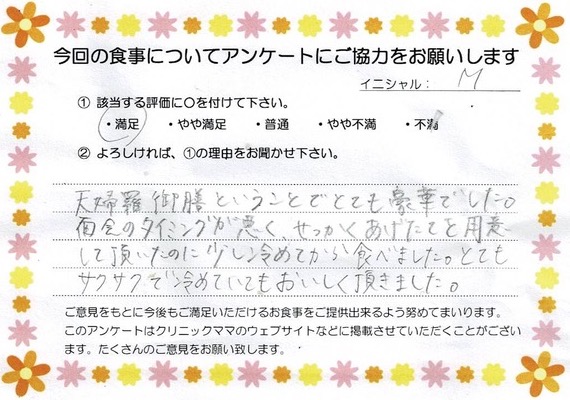 今回の食事についてアンケートにご協力をお願いします
イニシャル： M
① 該当する評価に〇を付けて下さい。
・満足 ・やや満足 ・普通 ・やや不満 ・不満
② よろしければ、①の理由をお聞かせ下さい。
天婦羅御膳ということでとても豪華でした。
面会のタイミングが悪く、せっかくあげたてを用意
して頂いたのに少し冷めてから食べました。とても
サクサクで冷めていてもおいしく頂きました。
ご意見をもとに今後もご満足いただけるお食事をご提供出来るよう努めてまいります。
このアンケートはクリニックママのウェブサイトなどに掲載させていただくことがござい
ます。たくさんのご意見をお願い致します。